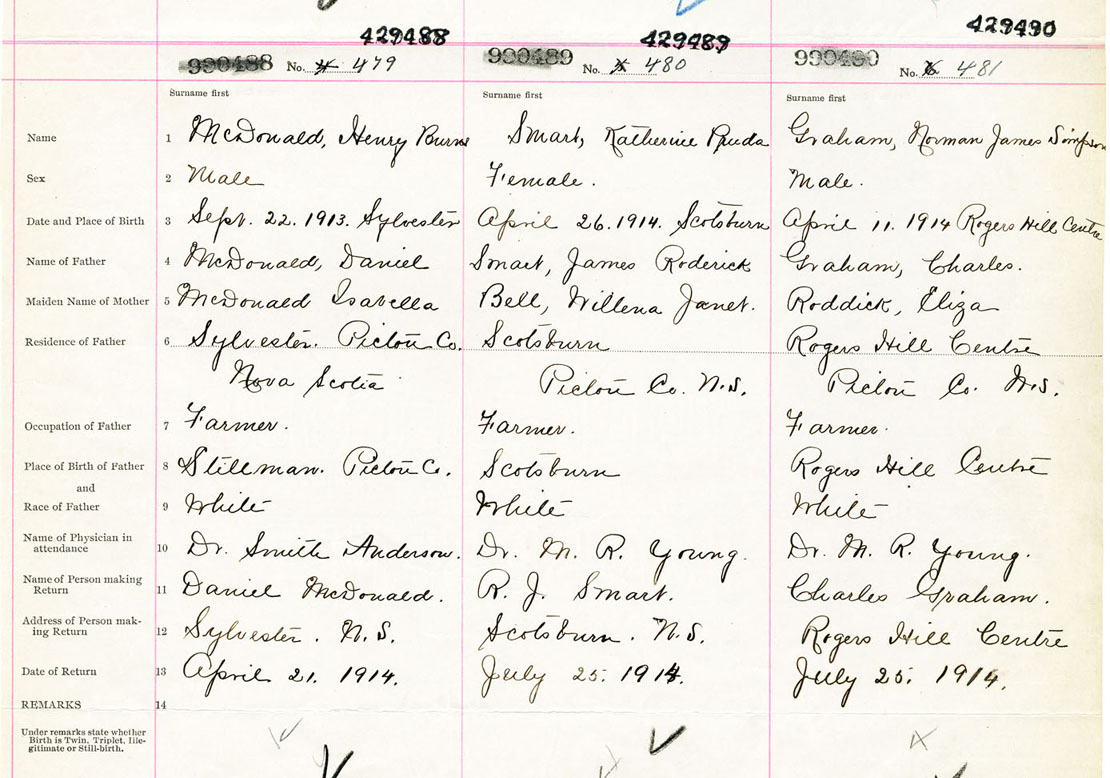 429488 429489 429490
990488 No. 479 990489 No. 480 990490 No. 481
Surname first Surname first Surname first
Name 1 McDonald, Henry Burns Smart, Katherine Graham, Norman James Simpson
Sex 2 Male Female. Male.
Date and Place of Birth 3 Sept. 22. 1913. Sylvester April 26. 1914. Scotsburn April 11. 1914 Rogers Hill Centre
Name of Father 4 McDonald, Daniel Smart, James Roderick Graham, Charles.
Maiden Name of Mother 5 McDonald Isabella Bell, Willena Janet. Roddick, Eliza
Residence of Father 6 Sylvester. Pictou Co. Scotsburn Rogers Hill Centre
Nova Scotia Pictou Co. N.S. Pictou Co. N.S.
Occupation of Father 7 Farmer. Farmer. Farmer.
Place of Birth of Father 8 Stillman. Pictou Co. Scotsburn Rogers Hill Centre
and
Race of Father 9 White White White
Name of Physician in
attendance 10 Dr. Smith Anderson. Dr. M. R. Young. Dr. M. R. Young.
Name of Person making
Return 11 Daniel McDonald. R. J. Smart. Charles Graham.
Address of Person mak-
ing Return 12 Sylvester. N.S. Scotsburn. N.S. Rogers Hill Centre
Date of Return 13 April 21. 1914. July 25. 1914. July 25. 1914.
REMARKS 14
Under remarks state whether
Birth is Twin, Triplet, Ille-
gitimate or Still-birth.